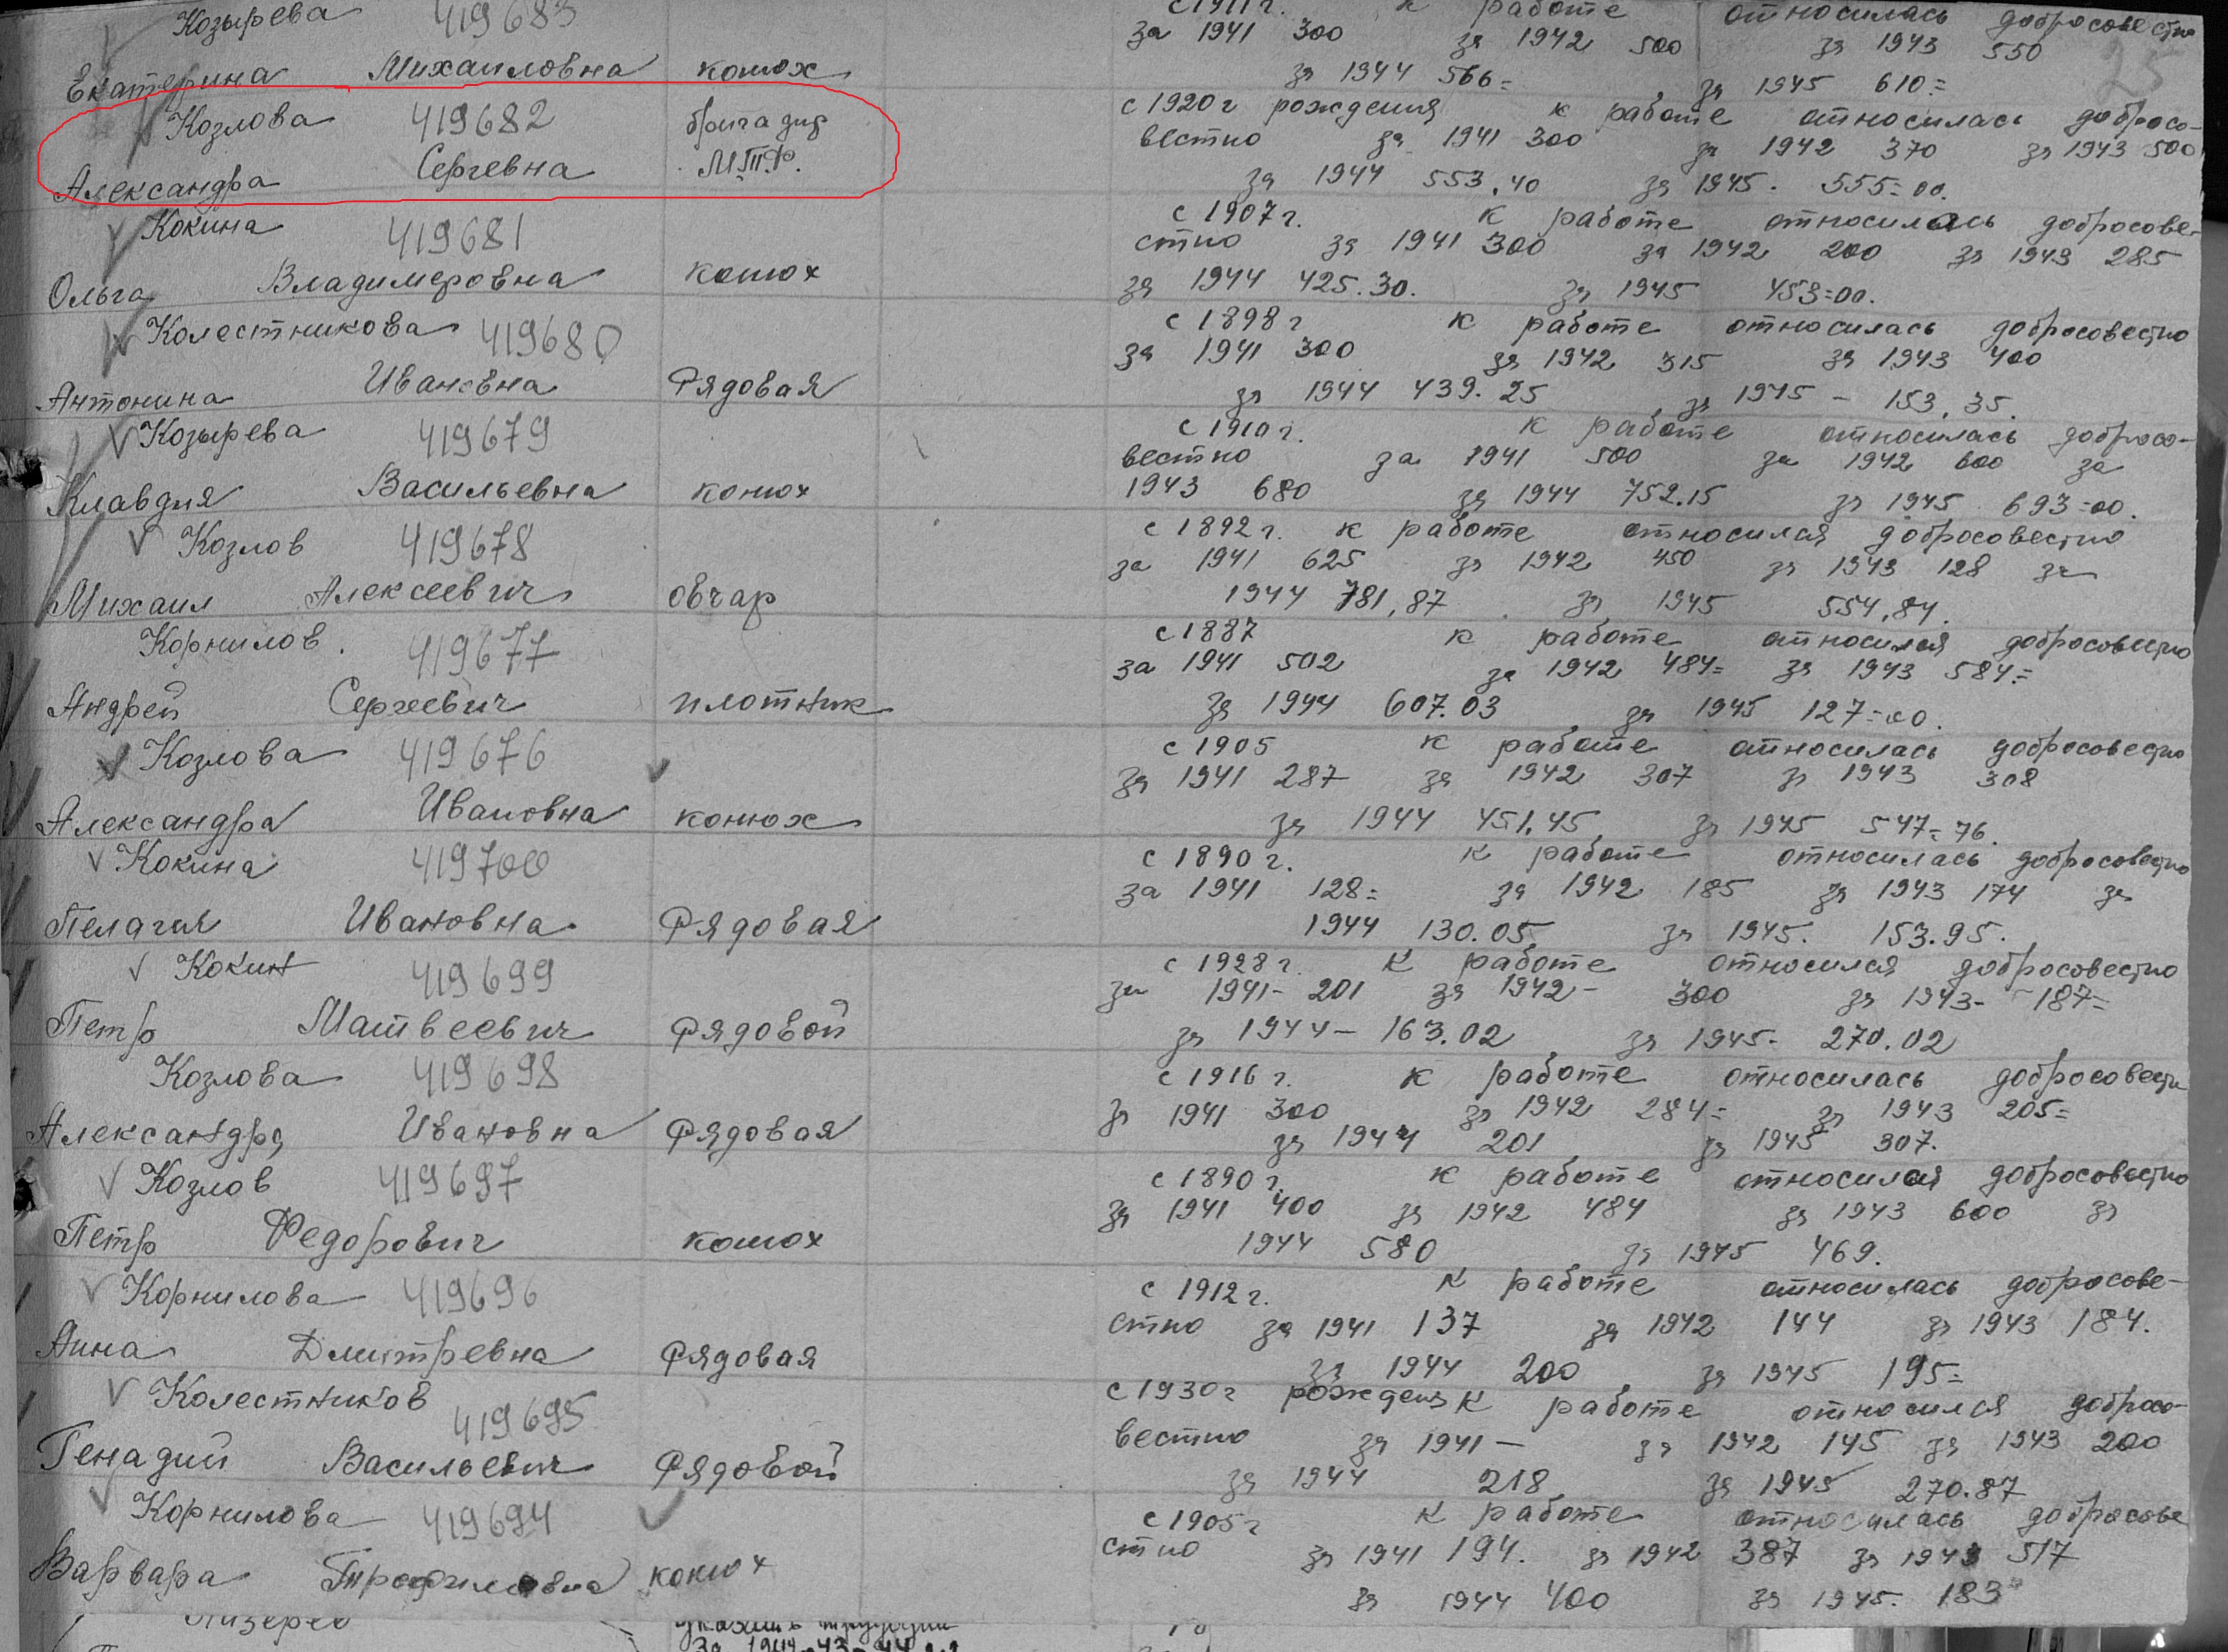 Козырева 419683 с 1911 г. к работе относилась добросовестно
за 1941 300 за 1942 500 за 1943 550
Екатерина Михаиловна конюх за 1944 566= за 1945 610=
25
Козлова 419682 бригадир с 1920 г рождения к работе относилась добросо-
вестно за 1941 300 за 1942 370 за 1943 500
Александра Сергевна М.Т.Ф. за 1944 553,40 за 1945. 555=00.
Кокина 419681 с 1907 г. к работе относилась добросове-
стно за 1941 300 за 1942 200 за 1943 285
Ольга Владимеровна конюх за 1944 425.30. за 1945 453=00.
Колестникова 419680 с 1898 г к работе относилась добросовестно
за 1941 300 за 1942 315 за 1943 400
Антонина Ивановна Рядовая за 1944 439.25 за 1945 - 153,35.
Козырева 419679 с 1910 г. к работе относилась добросо-
вестно за 1941 500 за 1942 600 за
Клавдия Васильевна конюх 1943 680 за 1944 752.15 за 1945 693=00.
Козлов 419678 с 1892 г. к работе относился добросовестно
за 1941 625 за 1942 450 за 1943 128 за
Михаил Алексеевич овчар 1944 781,87 за 1945 554,84.
Корнилов. 419677 с 1887 к работе относился добросовестно
за 1941 502 за 1942 484= за 1943 584=
Андрей Сергеевич плотник за 1944 607.03 за 1945 127=00.
Козлова 419676 с 1905 к работе относилась добросовестно
за 1941 287 за 1942 307 за 1943 308
Александра Ивановна конюх за 1944 451,45 за 1945 547=76.
Кокина 419700 с 1890 г. к работе относилась добросовестно
за 1941 128= за 1942 185 за 1943 174 за
Пелагия Ивановна Рядовая 1944 130.05 за 1945. 153.95.
Кокин 419699 с 1928 г. к работе относился добросовестно
за 1941- 201 за 1942- 300 за 1943- 187=
Петр Матвеевич Рядовой за 1944- 163.02 за 1945- 270.02
Козлова 419698 с 1916 г. к работе относилась добросовестн
за 1941 300 за 1942 284= за 1943 205=
Александра Ивановна Рядовая за 1944 201 за 1945 307.
Козлов 419697 с 1890 г. к работе относился добросовестно
за 1941 400 за 1942 484 за 1943 600 за
Петр Федорович конюх 1944 580 за 1945 469.
Корнилова 419696 с 1912 г. к работе относилась добросове-
стно за 1941 137 за 1942 144 за 1943 184.
Анна Дмитревна Рядовая за 1944 200 за 1945 195=
Колестников 419695 с 1930 г рождения к работе относился добросо-
вестно за 1941 — за 1942 145 за 1943 200
Генадий Васильевич Рядовой за 1944 218 за 1945 270.87
Корнилова 419694 с 1905 г к работе относилась добросове
стно за 1941 194. за 1942 387 за 1943 517
Варвара конюх за 1944 400 за 1945. 183